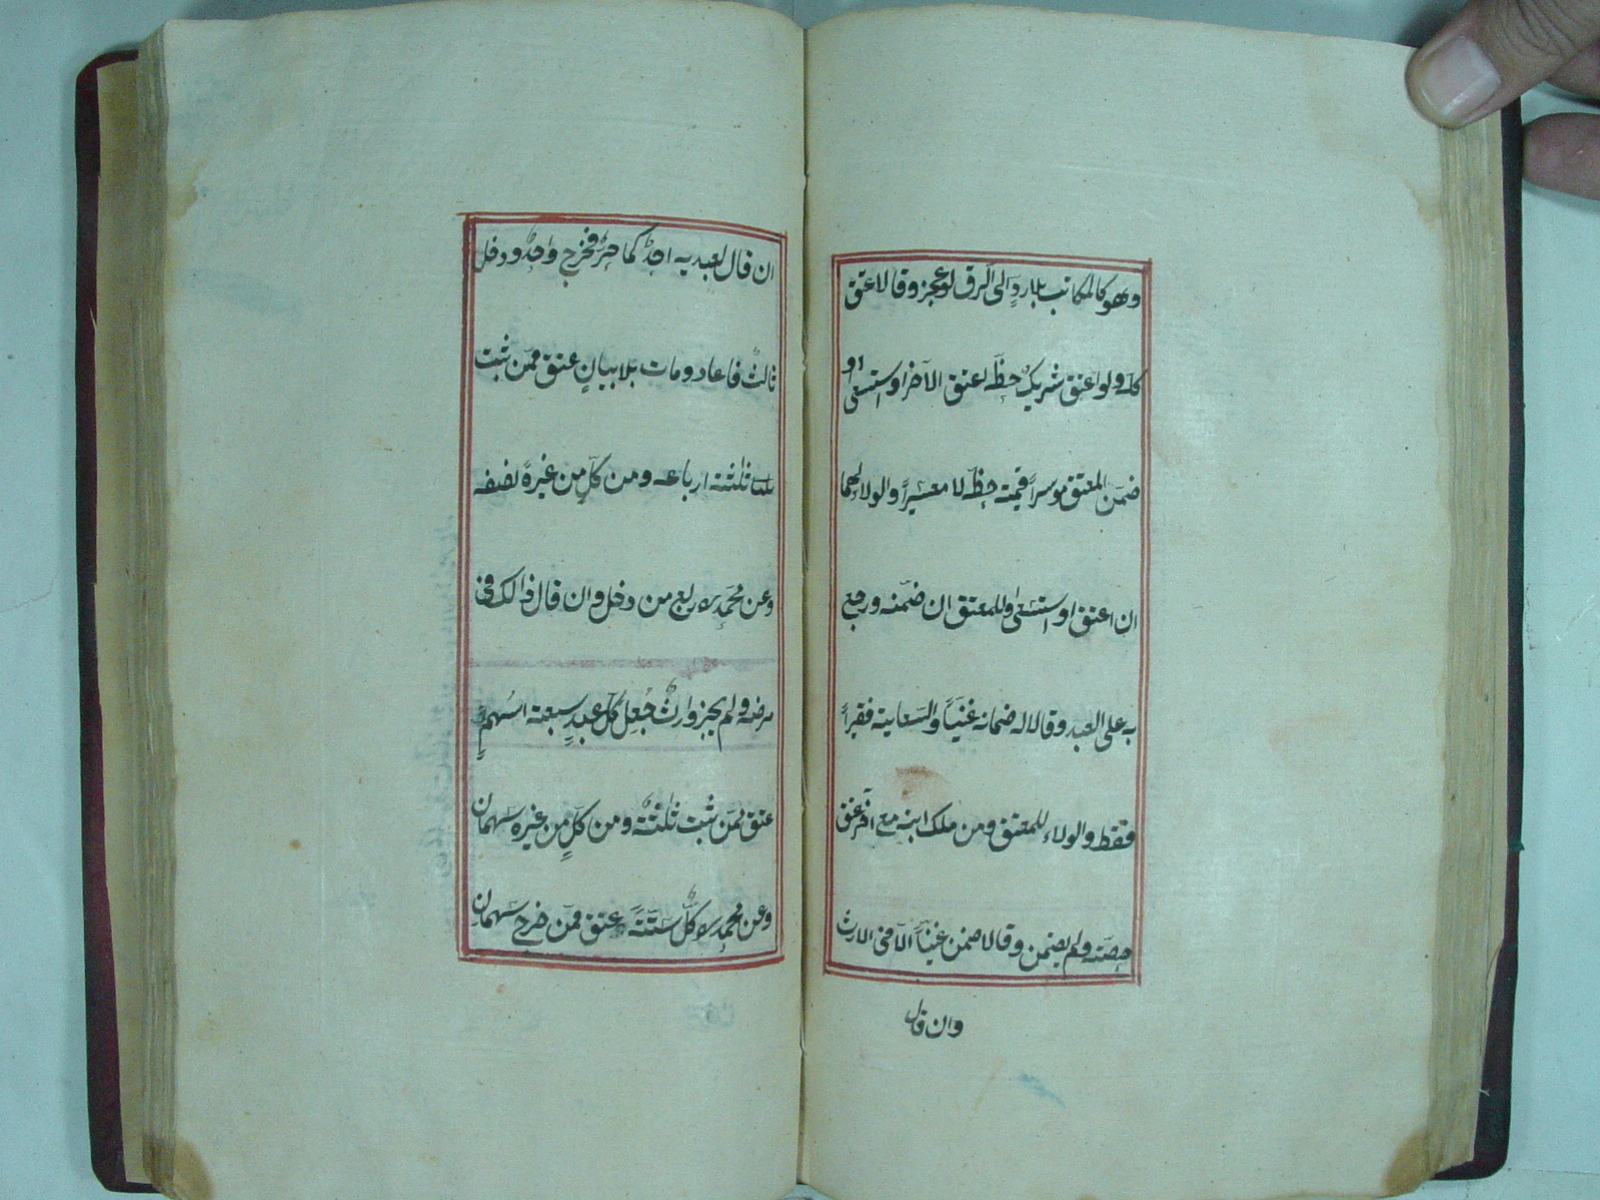 وهو كالمكاتب بلا ردٍ الى الرق لو عجز وقالا عتق
كله ولو اعتق شريك حظّه اعتق الآخر او استسعى او
ضمّن المعتق موسراً قيمة حظّه لا معسراً والولاء لهما
ان اعتق او استسعى وللمعتق ان ضمّنه ورجع
به على العبد وقالا له ضمانه غنيّاً والسّعاية فقيراً
فقط والولاء للمعتق ومن ملك ابنه مع آخر عتق
حصّته ولم يضمن وقالا ضمن غنيّاً الّا فى الارث
وان قال
ان قال لعبديه احدكما حرّ فخرج واحدٌ ودخل
ثالثٌ فاعاد ومات بلا بيانٍ عتق ممّن ثبت
ثلثة ارباعه ومن كلٍّ من غيره نصفه
وعن محمّدٍ ره ربع من دخل وان قال ذالك فى
مرضه ولم يجز وارثٌ جُعل كلّ عبدٍ سبعة اسُهمٍ
عتق ممّن ثبت ثلٰثة ومن كلٍّ من غيره سهمان
وعن محمّدٍ ره كلّ ستّةً عتق ممّن خرج سهمان